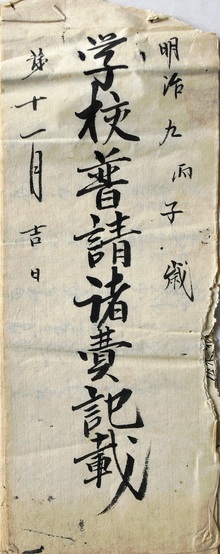 明治九丙子歳
学校普請諸費記載
十一月吉日